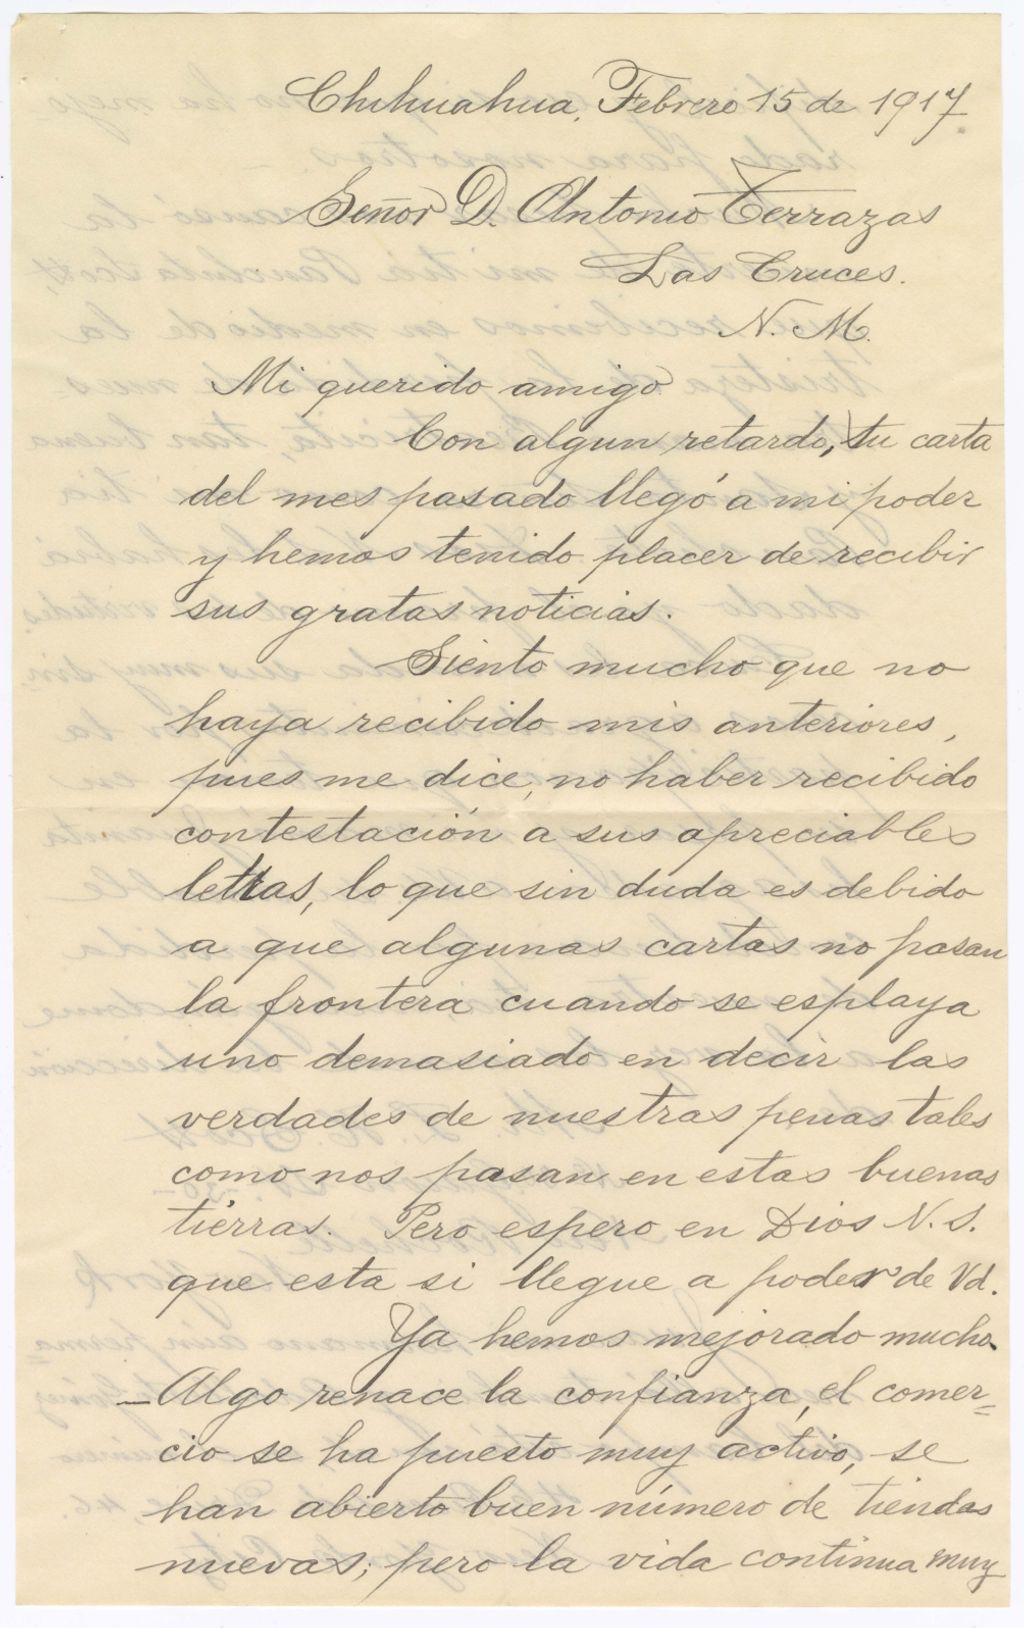 Chihuahua, Febrero 15 de 1917.
Señor D. Antonio Terrazas
Las Cruces.
N. M.
Mi querido amigo
Con algun retardo, tu carta
del mes pasado llegó a mi poder
y hemos tenido placer de recibir
sus gratas noticias.
Siento mucho que no
haya recibido mis anteriores,
pues me dice, no haber recibido
contestación a sus apreciables
letras, lo que sin duda es debido
a que algunas cartas no pasan
la frontera cuando se esplaya
uno demasiado en decir las
verdades de nuestras penas tales
como nos pasan en estas buenas
tierras. Pero espero en Dios N. S.
que esta si llegue a poder de Vd.
Ya hemos mejorado mucho.
—Algo renace la confianza, el comer=
cio se ha puesto muy activo, se
han abierto buen número de tiendas
nuevas; pero la vida continua muy